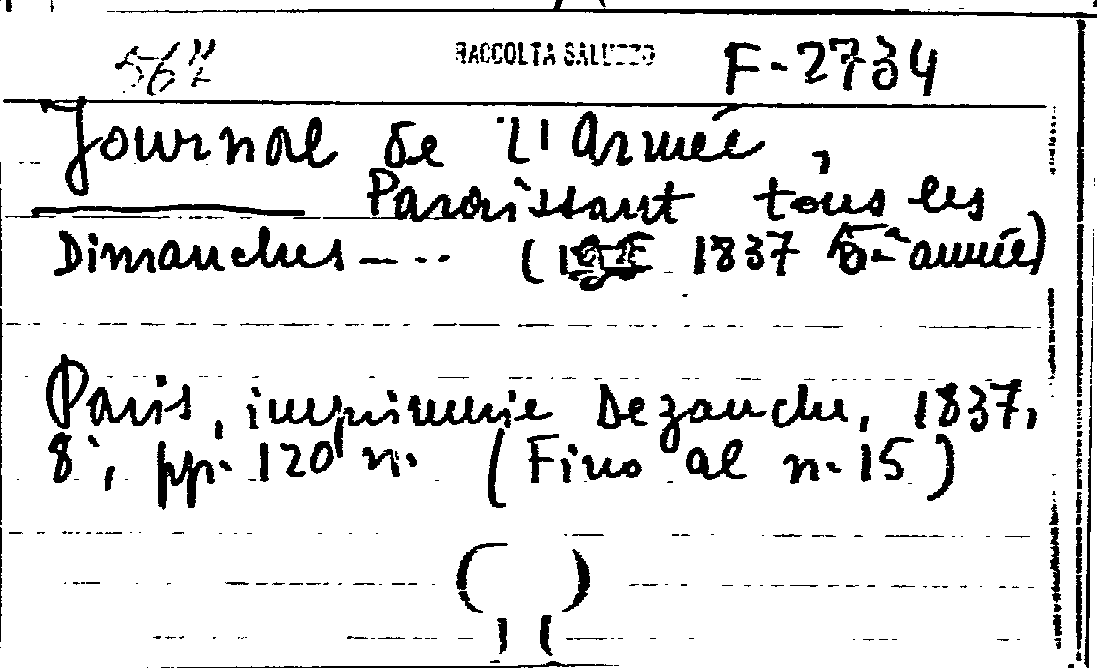 567 RACCOLTA SALUZZO F-2734
Journal de l'Armée,
Paraissant tous les
Dimanches -... ( 1837 5.e année)
Paris, imprimerie Dezauche, 1837,
8°, pp. 120 n. (Fino al n. 15)